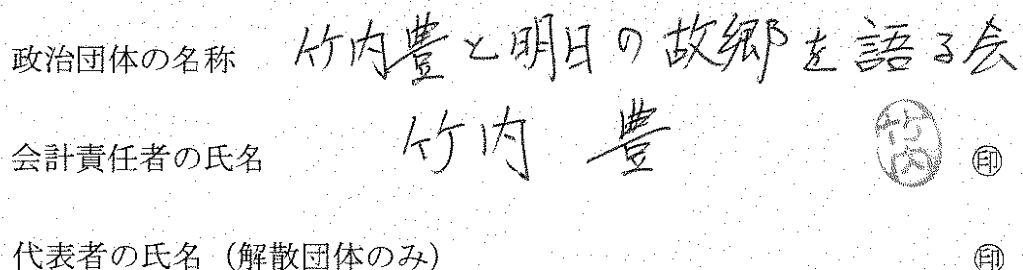 政治団体の名称 竹内豊と明日の故郷を語る会
会計責任者の氏名 竹内 豊 竹内 ㊞
代表者の氏名（解散団体のみ） ㊞